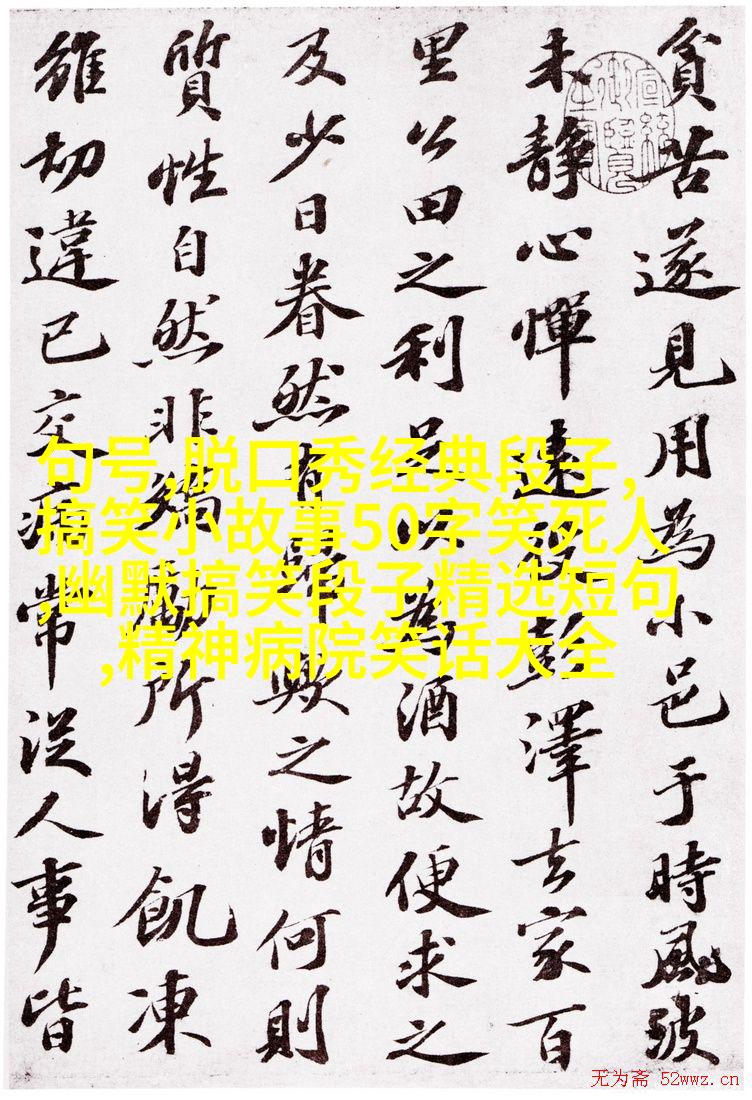 貧苦遂見用為小邑于時風波
未靜心憚遠役彭澤去家百
里公田之利足以為酒故便求之
及少日眷然有歸歟之情何則
質性自然非矯勵所得飢凍
雖切違已交病常從人事皆
句号,脱口秀经典段子,
搞笑小故事50字笑死人
,幽默搞笑段子精选短句
,精神病院笑话大全
无为斋 52wwz.cn